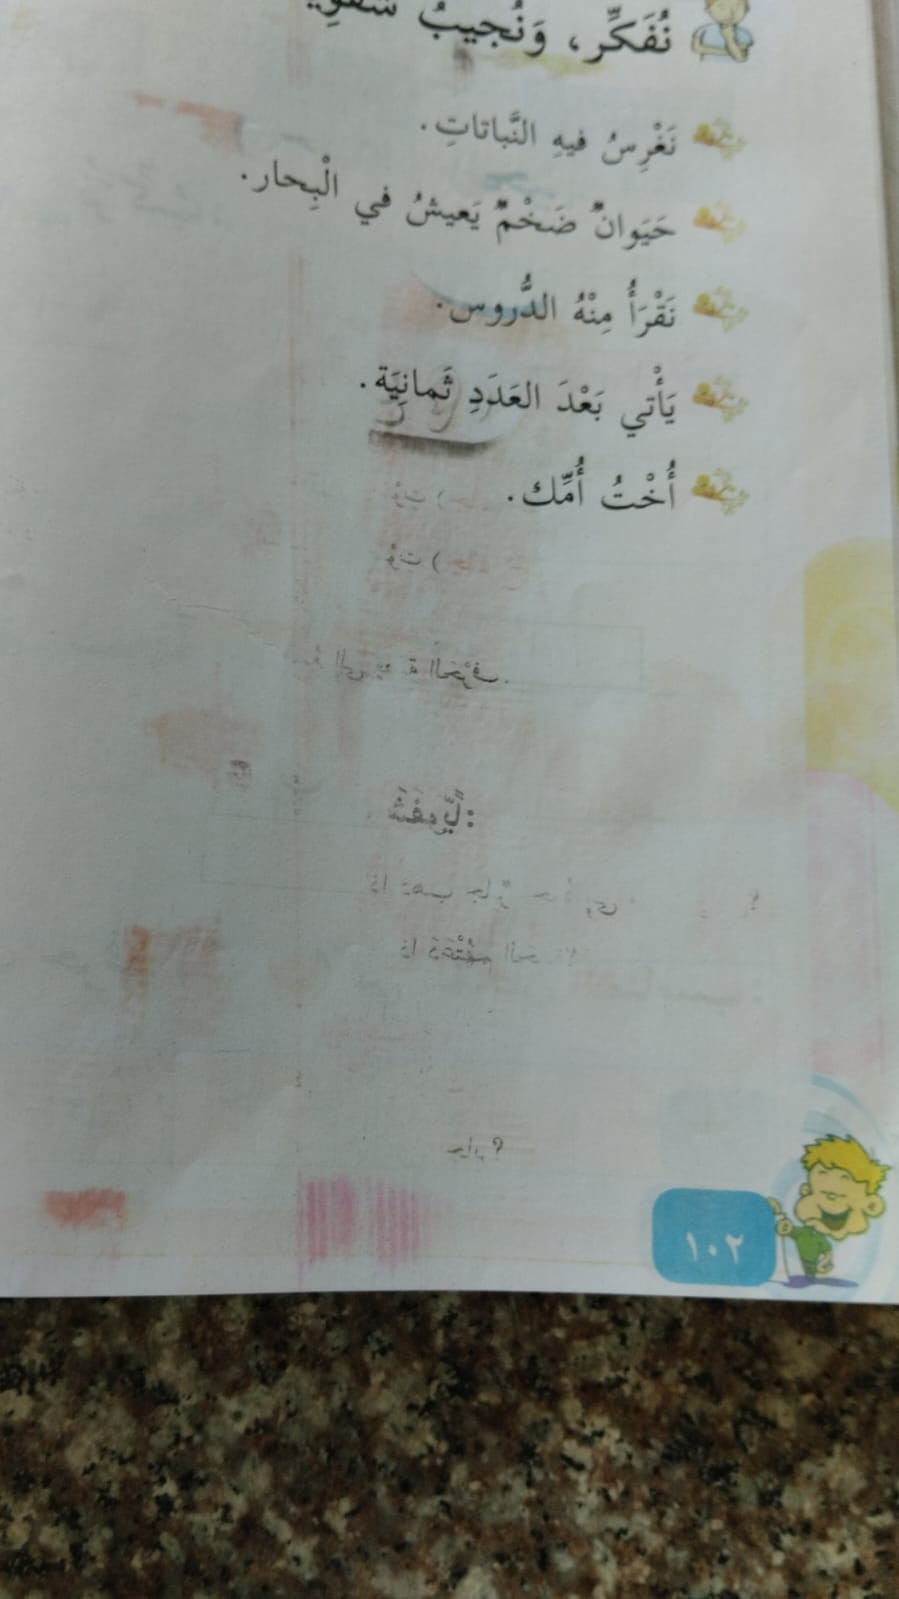 نُفَكِّر، وَنُجيبُ
نَغْرِسُ فيهِ النَّباتاتِ.
حَيَوانٌ ضَخْمٌ يَعيشُ في الْبِحار.
نَقْرَأُ مِنْهُ الدُّروس.
يَأْتي بَعْدَ العَدَدِ ثَمانِيَة.
أُخْتُ أُمِّك.
١٠٢